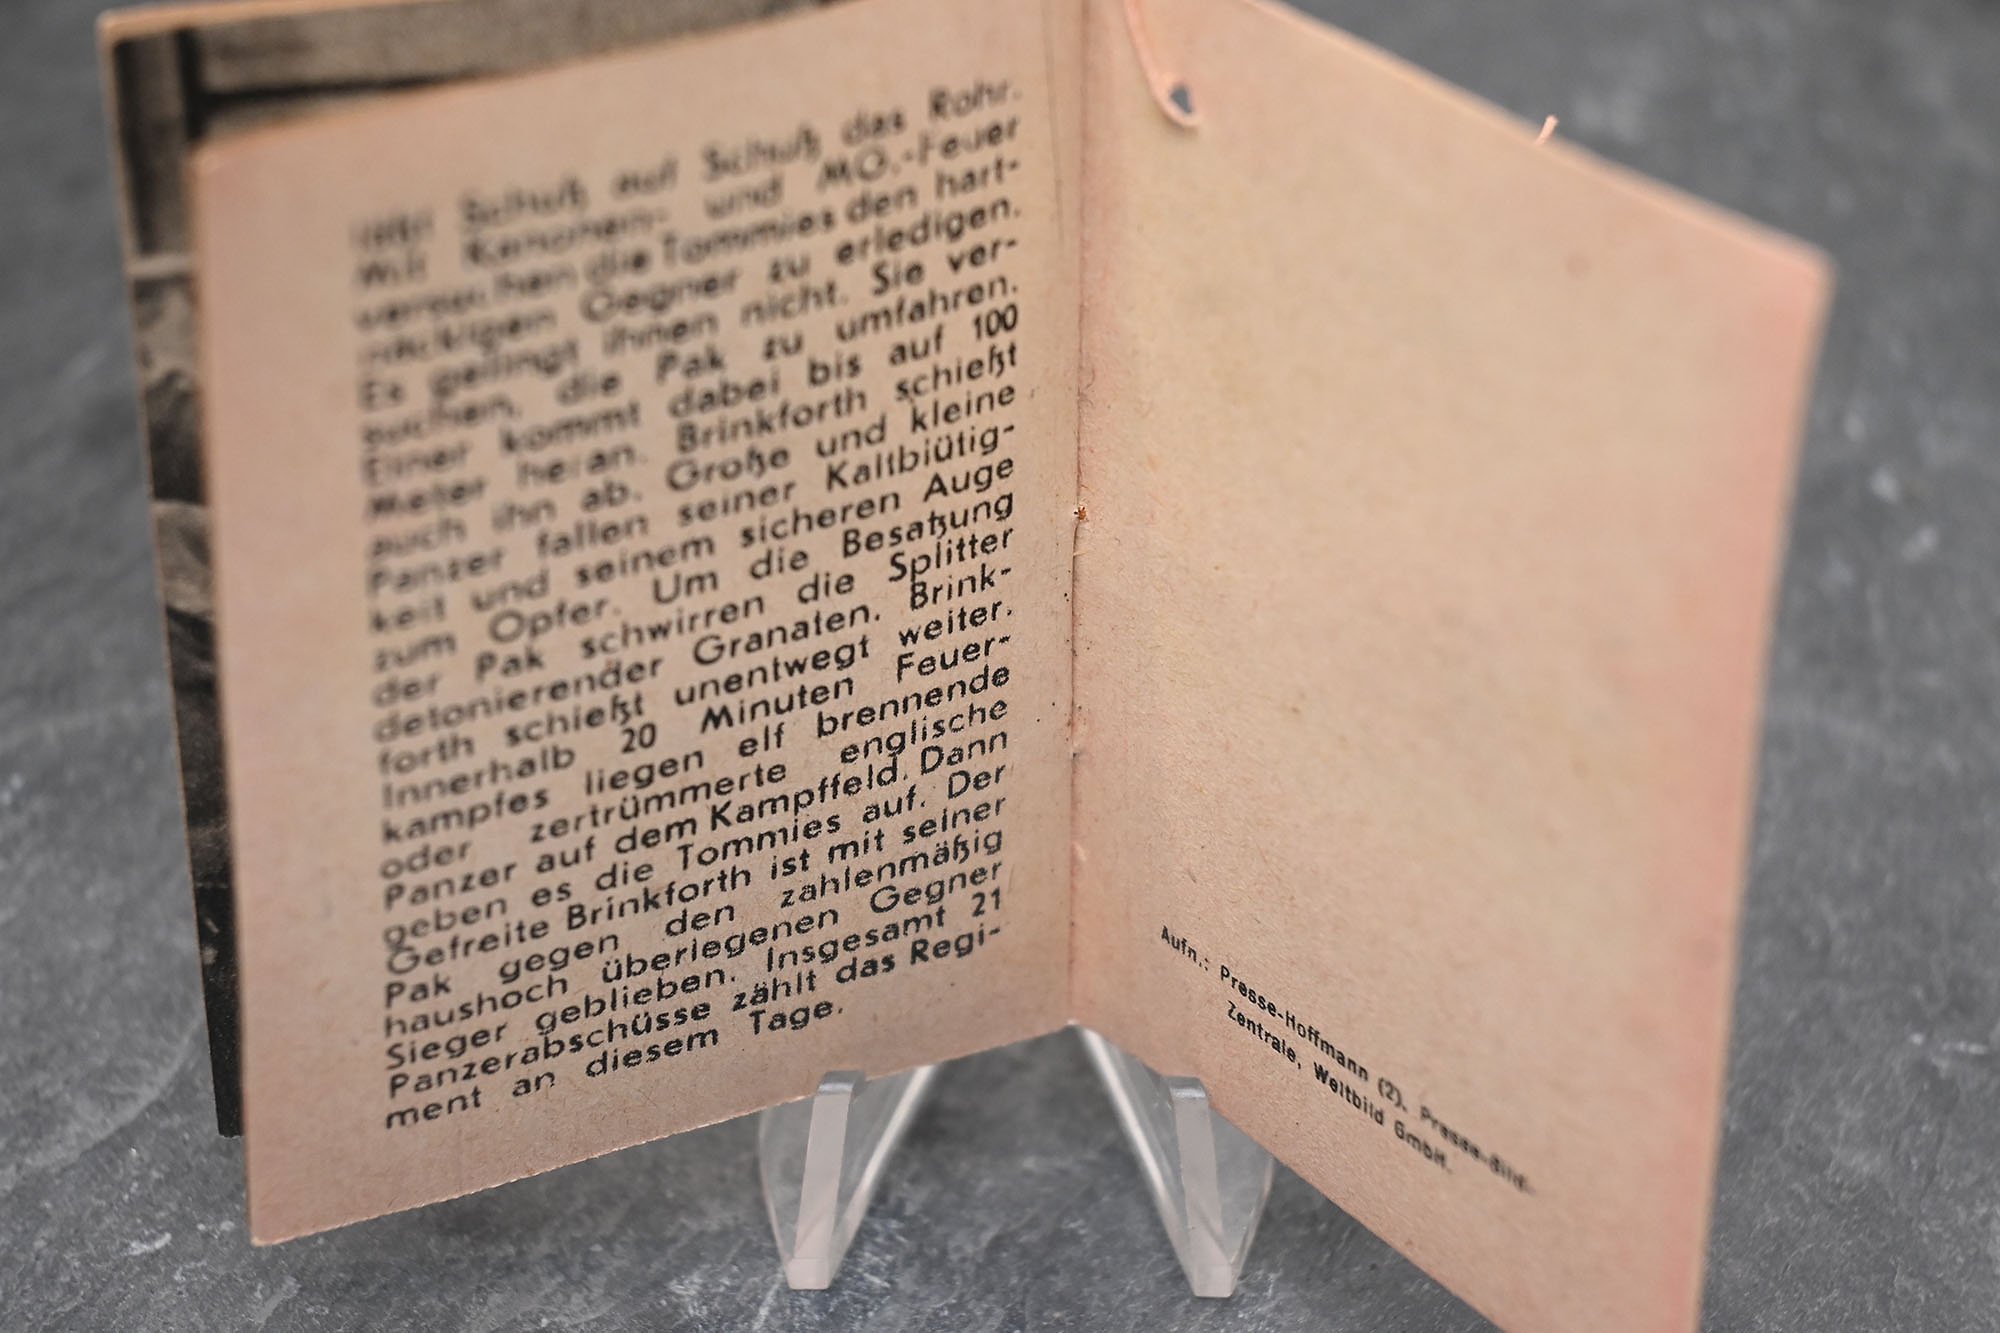 Schuß auf Schuß das Rohr.
Mit Kanonen- und MG.-Feuer
versuchen die Tommies den hart-
näckigen Gegner zu erledigen.
Es gelingt ihnen nicht. Sie ver-
suchen, die Pak zu umfahren.
Einer kommt dabei bis auf 100
Meter heran. Brinkforth schießt
auch ihn ab. Große und kleine
Panzer fallen seiner Kaltblütig-
keit und seinem sicheren Auge
zum Opfer. Um die Besatzung
der Pak schwirren die Splitter
detonierender Granaten. Brink-
forth schießt unentwegt weiter.
Innerhalb 20 Minuten Feuer-
kampfes liegen elf brennende
oder zertrümmerte englische
Panzer auf dem Kampffeld. Dann
geben es die Tommies auf. Der
Gefreite Brinkforth ist mit seiner
Pak gegen den zahlenmäßig
haushoch überlegenen Gegner
Sieger geblieben. Insgesamt 21
Panzerabschüsse zählt das Regi-
ment an diesem Tage.
Aufn.: Presse-Hoffmann (2), Presse-Bild-
Zentrale, Weltbild GmbH.